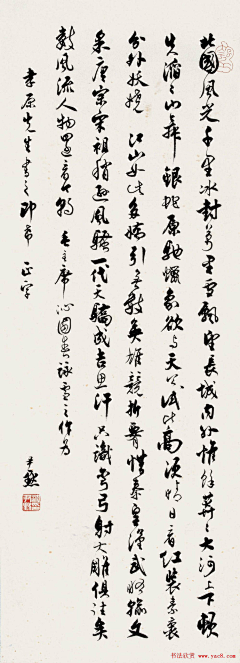 北國風光千里冰封萬里雪飄望長城內外惟餘莽〻大河上下頓
失滔〻山舞銀蛇原馳蠟象欲与天公試比高須晴日看紅裝素裹
分外妖嬈 江山如此多嬌引無數英雄競折腰惜秦皇漢武略輸文
采唐宗宋祖稍遜風騷一代天驕成吉思汗只識彎弓射大雕俱往矣
數風流人物還看今朝 毛主席沁園春詠雪之作為
先生書之即希 正字
尹默